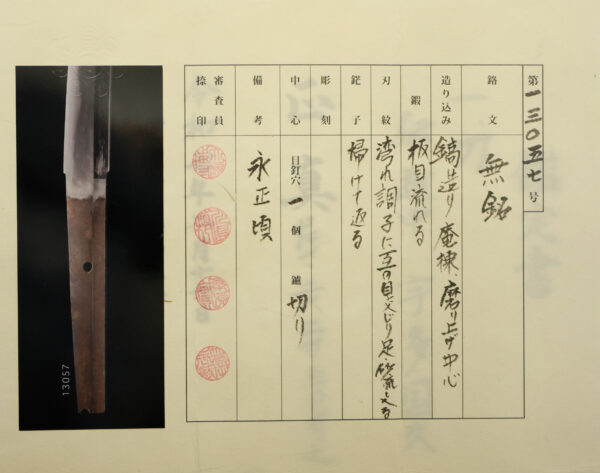 第一三〇五七号
銘文 無銘
造り込み 鎬造り 庵棟、磨り上げ中心
鍛 板目流れる
刃紋 湾れ調子に互の目交じり足、砂流入る
鋩子 掃けて返る
彫刻
中心 目釘穴 一 個 鑢 切り
備考 永正頃
審査員捺印
13057